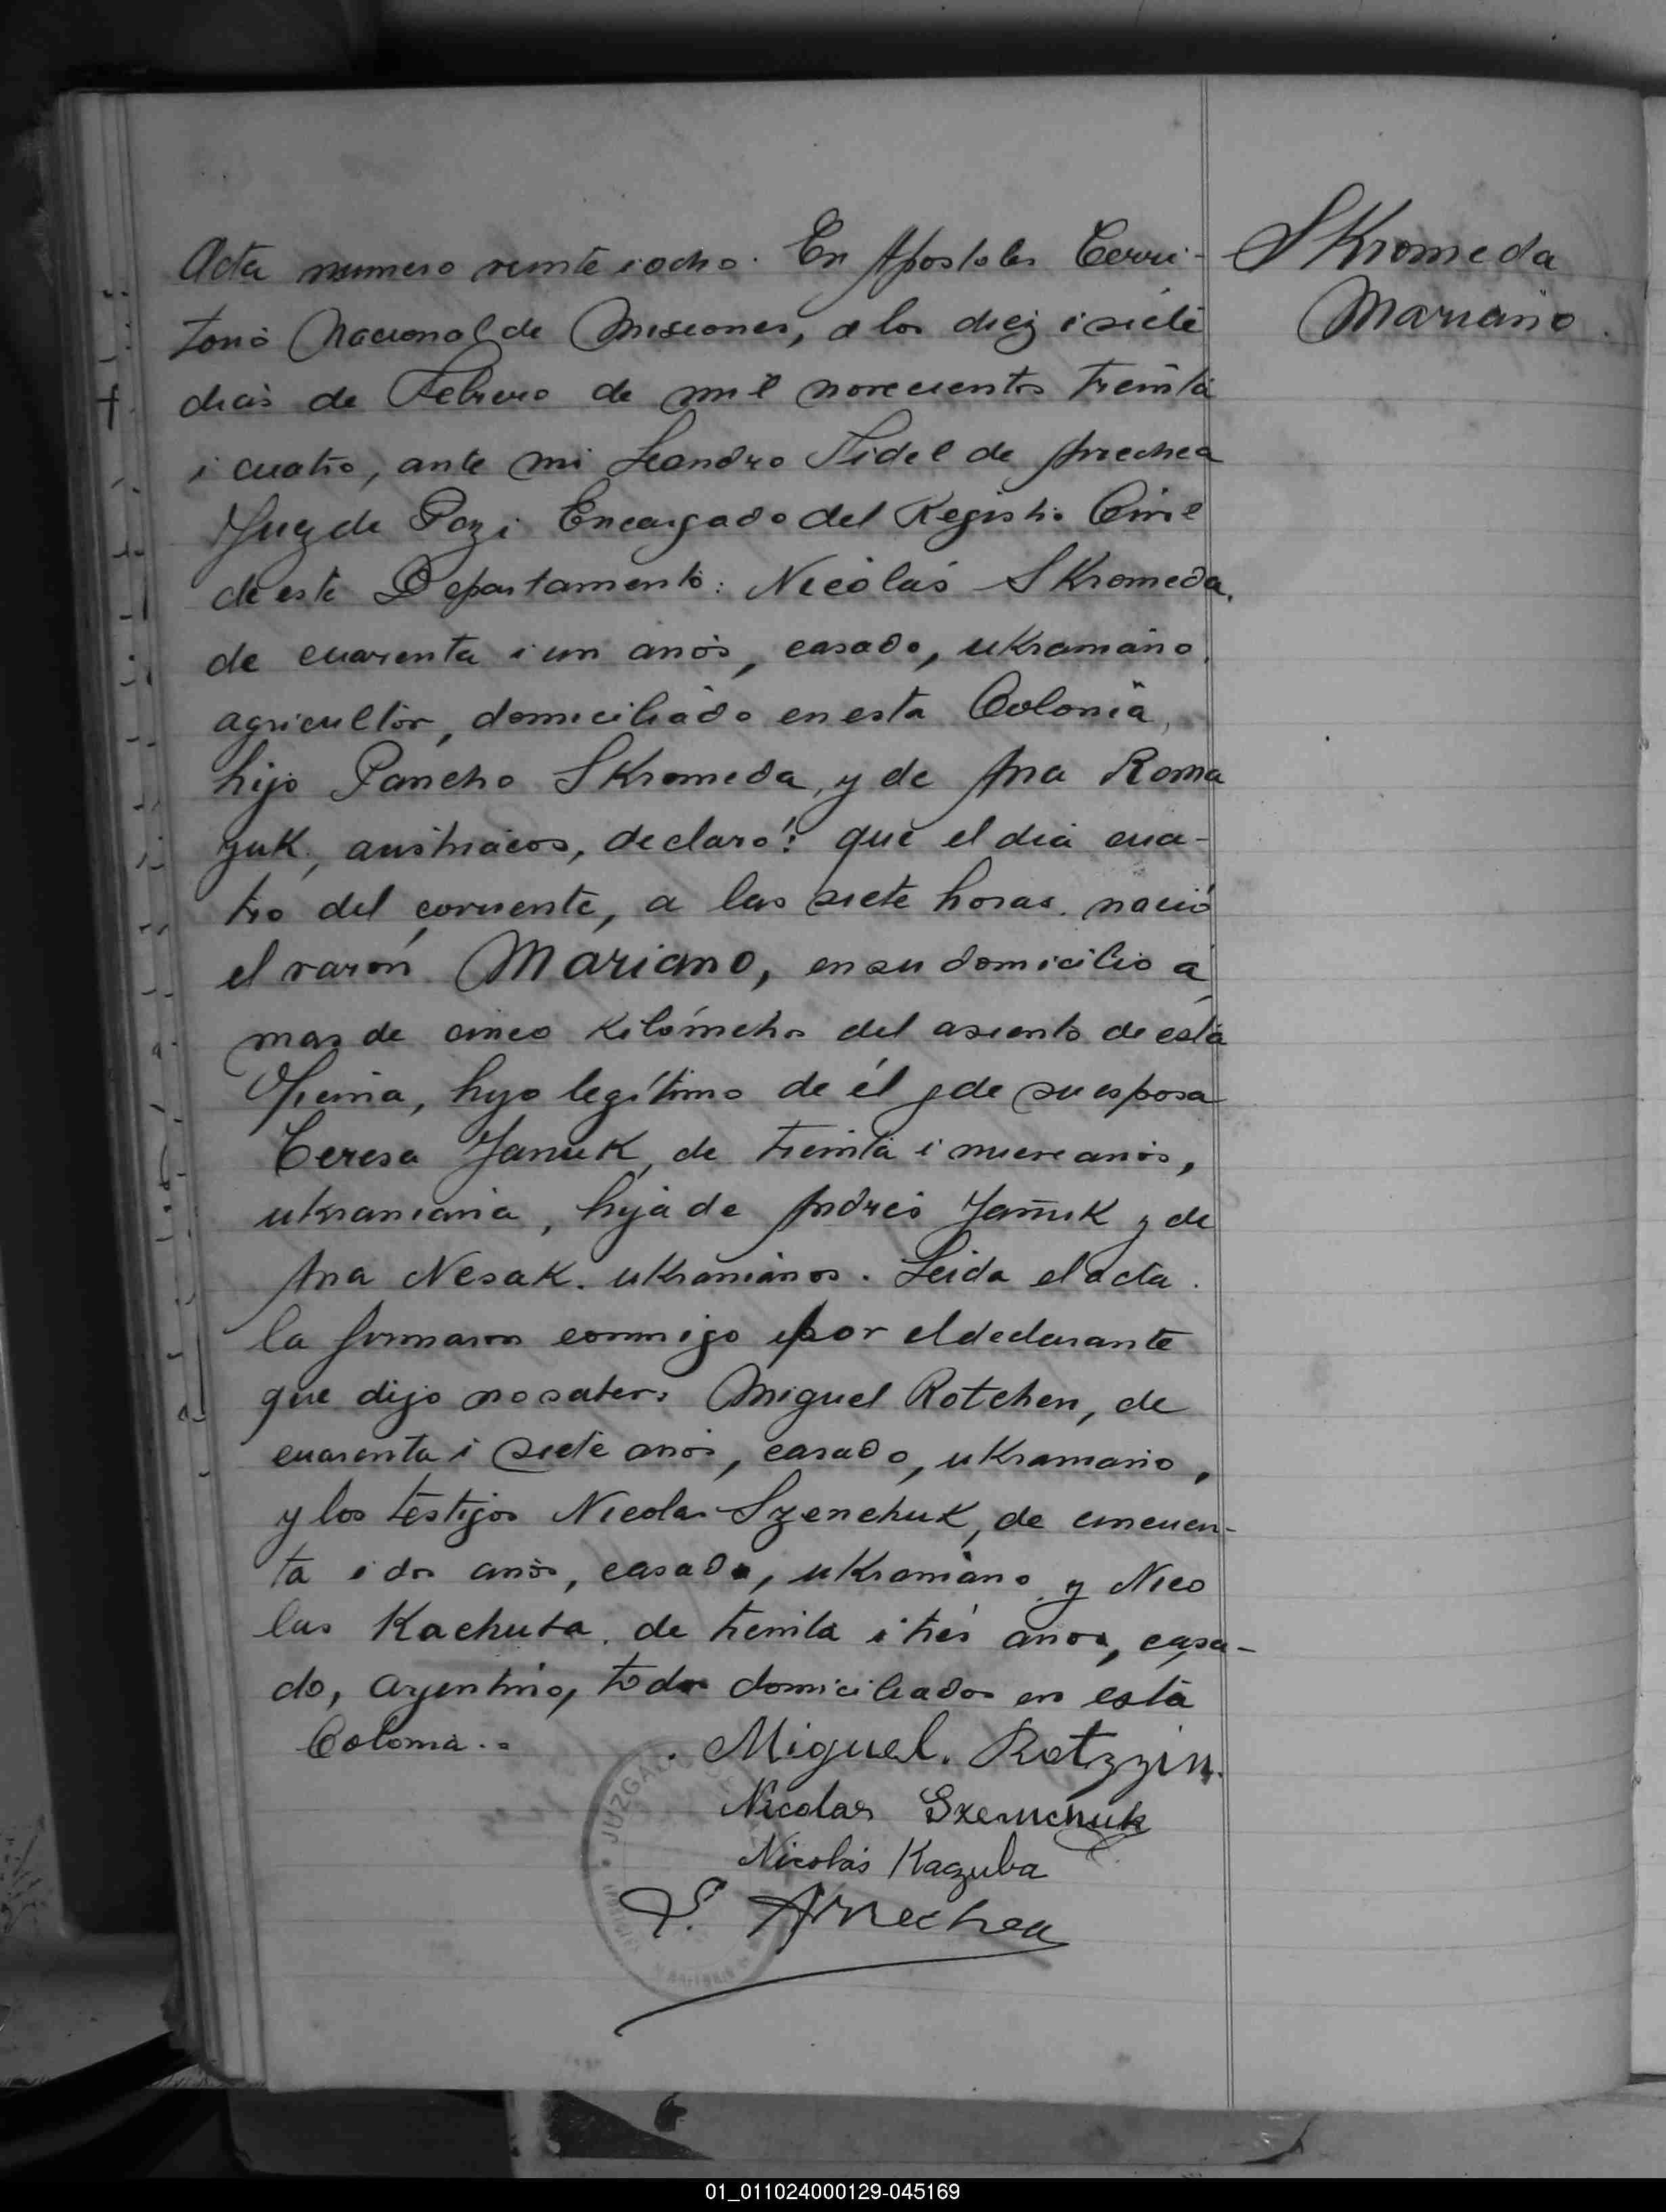 Acta numero veinte i ocho. En Apostoles Terri-
torio Nacional de Misiones, a los diez i siete
dias de Febrero de mil novecientos treinta
i cuatro, ante mi Leandro Fidel de Arrechea
Juez de Paz i Encargado del Registro Civil
de este Departamento: Nicolás SKromeda,
de cuarenta i un años, casado, ukraniano,
agricultor, domiciliado en esta Colonia,
hijo Pancho SKromeda, y de Ana Roma
zuk, austriacos, declaró: que el dia cua-
tro del corriente, a las siete horas nació
el varón Mariano, en su domicilio a
mas de cinco kilómetros del asiento de esta
Oficina, hijo legítimo de él y de su esposa
Teresa Januk, de treinta i nueve años,
ukraniana, hija de Andrés Januk y de
Ana Nesak, ukranianos. Leida el acta
la firmaron conmigo i por el declarante
que dijo no saber, Miguel Rotchen, de
cuarenta i siete años, casado, ukraniano,
y los testigos Nicolas Szenchuk, de cincuen-
ta i dos años, casado, ukraniano y Nico
las Kachuba, de treinta i trés años, casa-
do, argentino, todos domiciliados en esta
Colonia.
Miguel. Rotzzin.
Nicolas Szemchuk
Nicolás Kazuba
L. Arrechea
SKromeda
Mariano.
JUZGADO
01_011024000129-045169